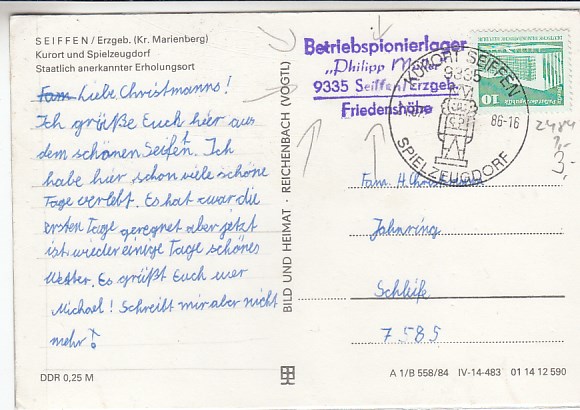 SEIFFEN / Erzgeb. (Kr. Marienberg)
Kurort und Spielzeugdorf
Staatlich anerkannter Erholungsort
Fam. Liebe Christmanns!
Ich grüße Euch hier aus
dem schönen Seifen. Ich
habe hier schon viele schöne
Tage verlebt. Es hat zwar die
ersten Tage geregnet aber jetzt
ist wieder einige Tage schönes
Wetter. Es grüßt Euch
Michael! Schreibt mir aber nicht
mehr!
DDR 0,25 M
BILD UND HEIMAT · REICHENBACH (VOGTL)
Betriebspionierlager
„Philipp Müller"
9335 Seiffen/Erzgeb.
Friedenshöhe
KURORT SEIFFEN
9335
86-16
SPIELZEUGDORF
10
2484
3,-
Fam. H.
Jahnring
Schleife
7585
A 1/B 558/84 IV-14-483 01 14 12 590